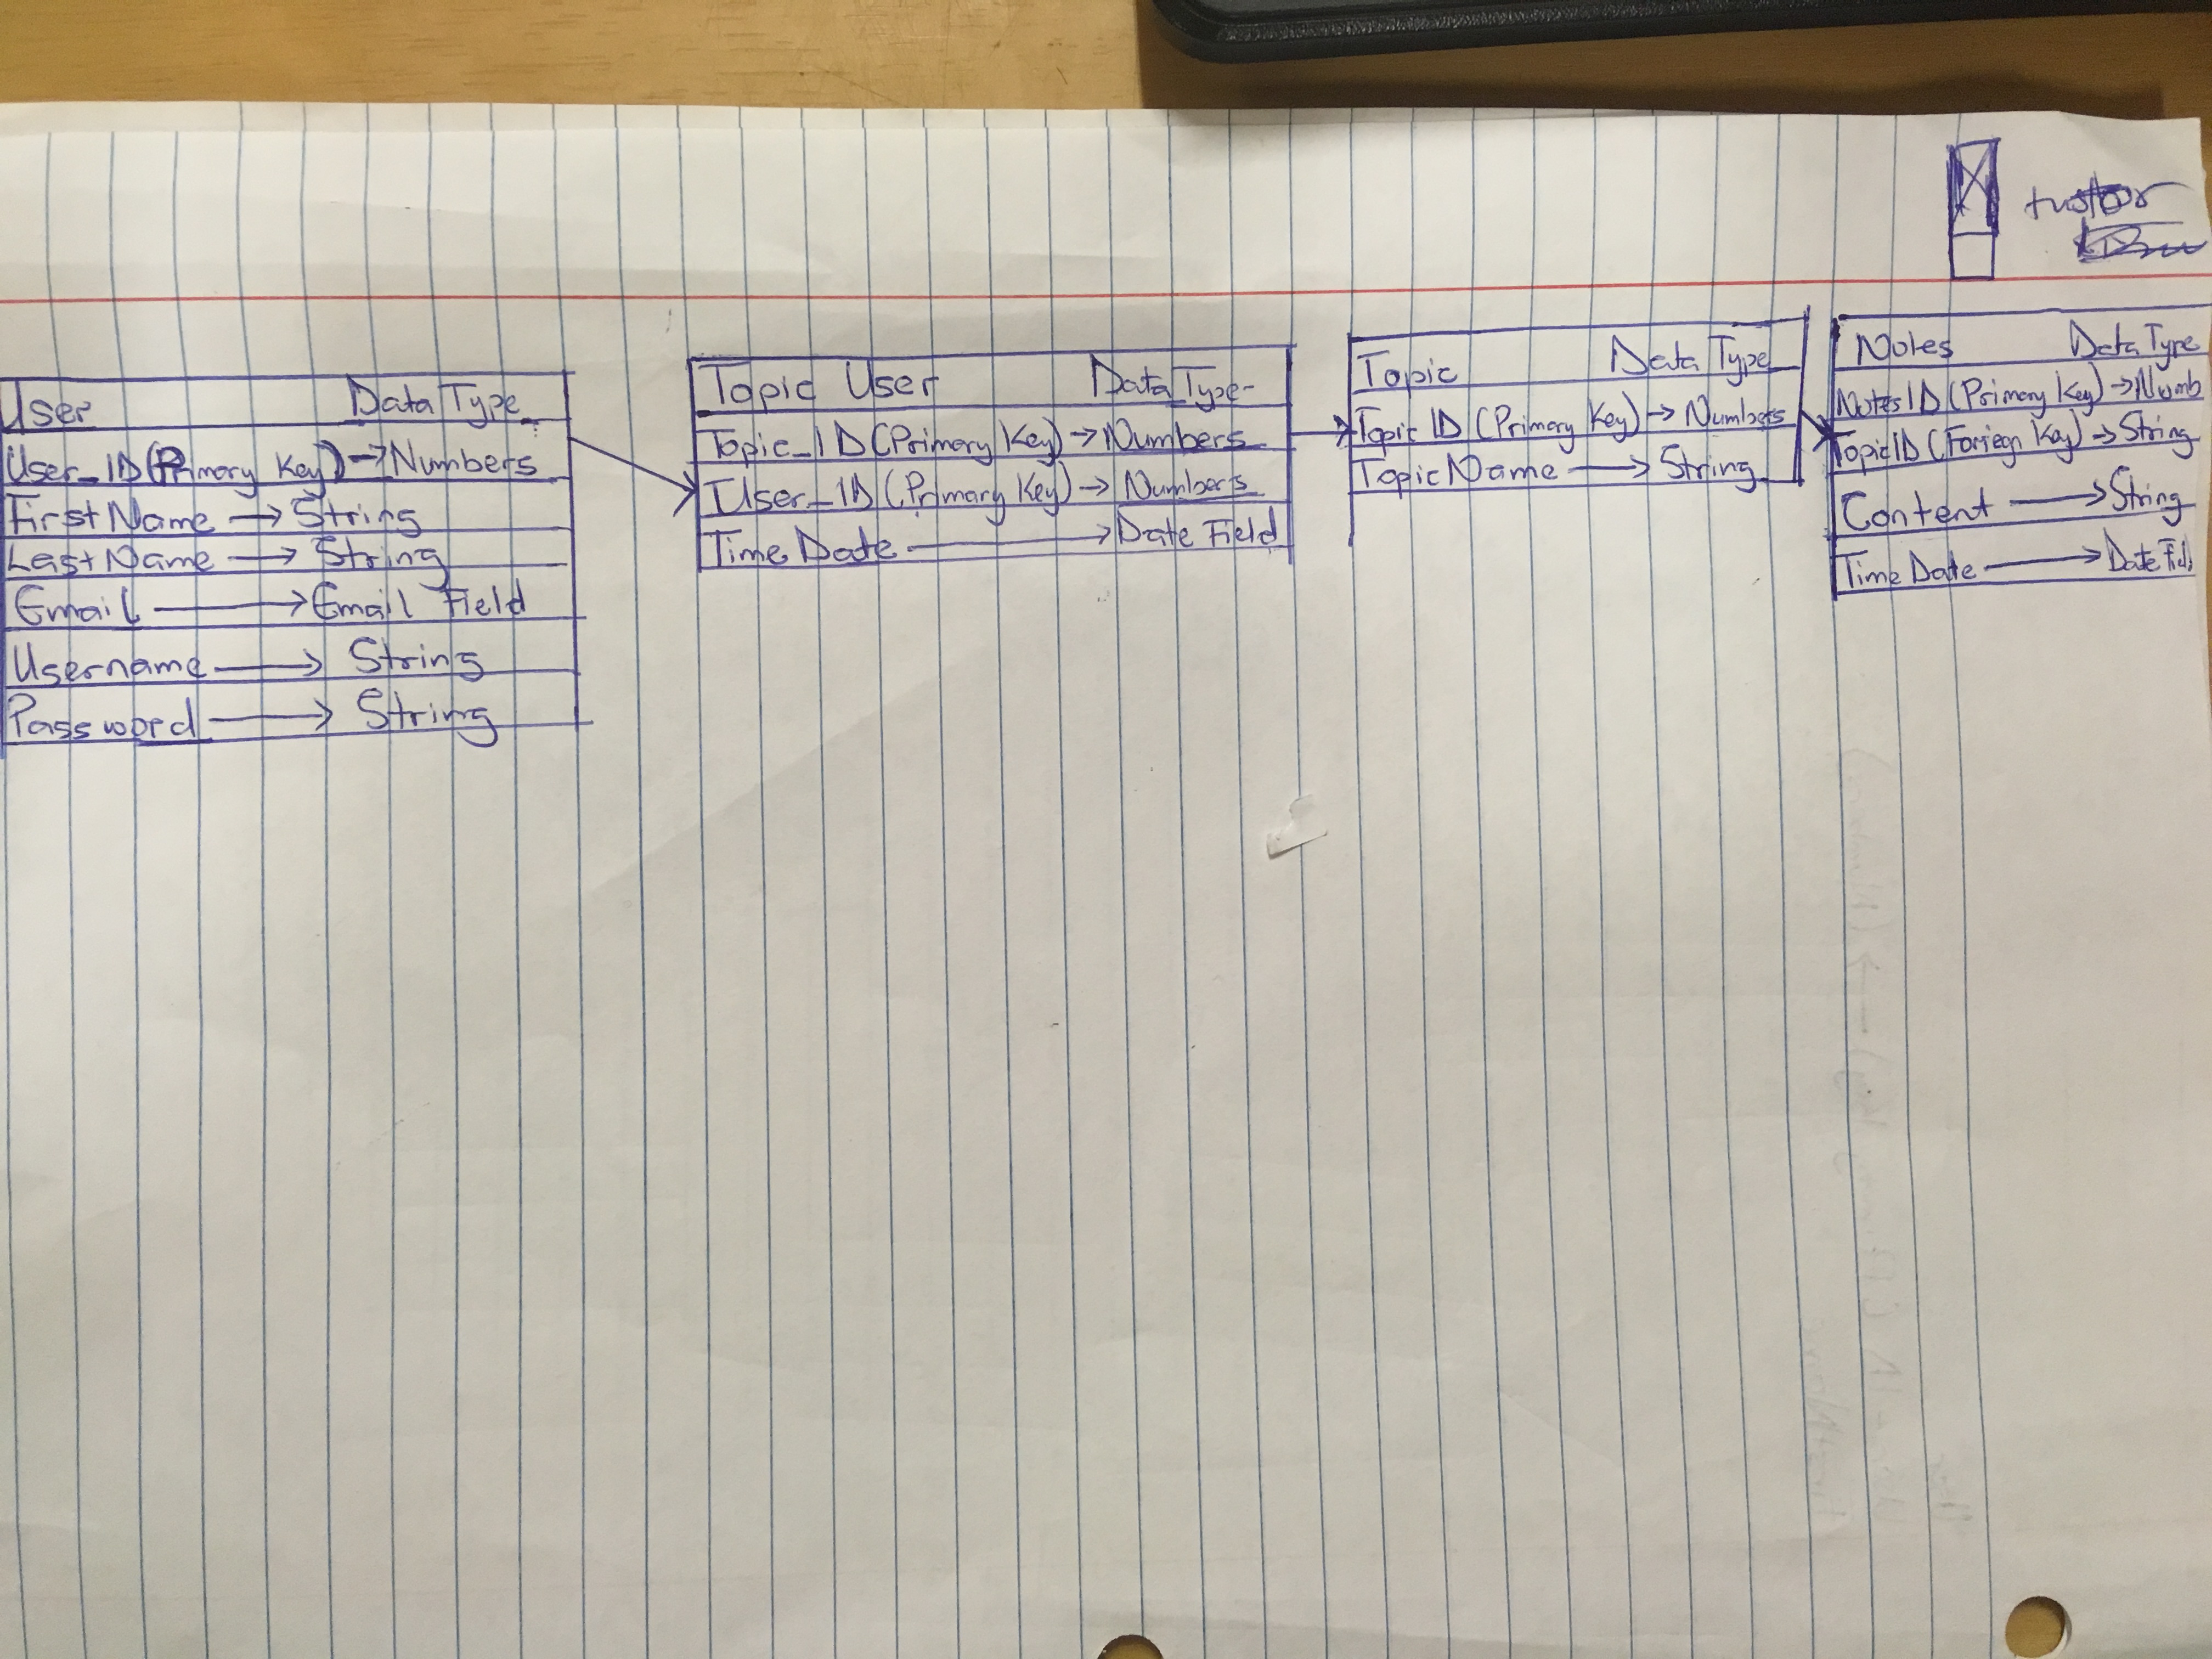 User Data Type
User_ID (Primary Key) → Numbers
First Name → String
Last Name → String
Email → Email Field
Username → String
Password → String
Topic User Data Type
Topic_ID (Primary Key) → Numbers
User_ID (Primary Key) → Numbers
Time Date → Date Field
Topic Data Type
Topic ID (Primary Key) → Numbers
Topic Name → String
Notes Data Type
Notes ID (Primary Key) → Numb
Topic ID (Foriegn Key) → String
Content → String
Time Date → Date Fid